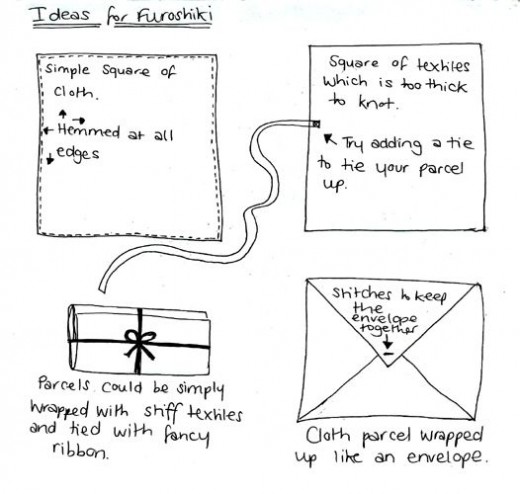 Ideas for Furoshiki
Simple Square of
Cloth.
Hemmed at all
edges
Square of textiles
which is too thick
to knot.
Try adding a tie
to tie your parcel
up.
Parcels could be simply
wrapped with stiff textiles
and tied with fancy
ribbon.
Stitches to keep
the
envelope
together
Cloth parcel wrapped
up like an envelope.